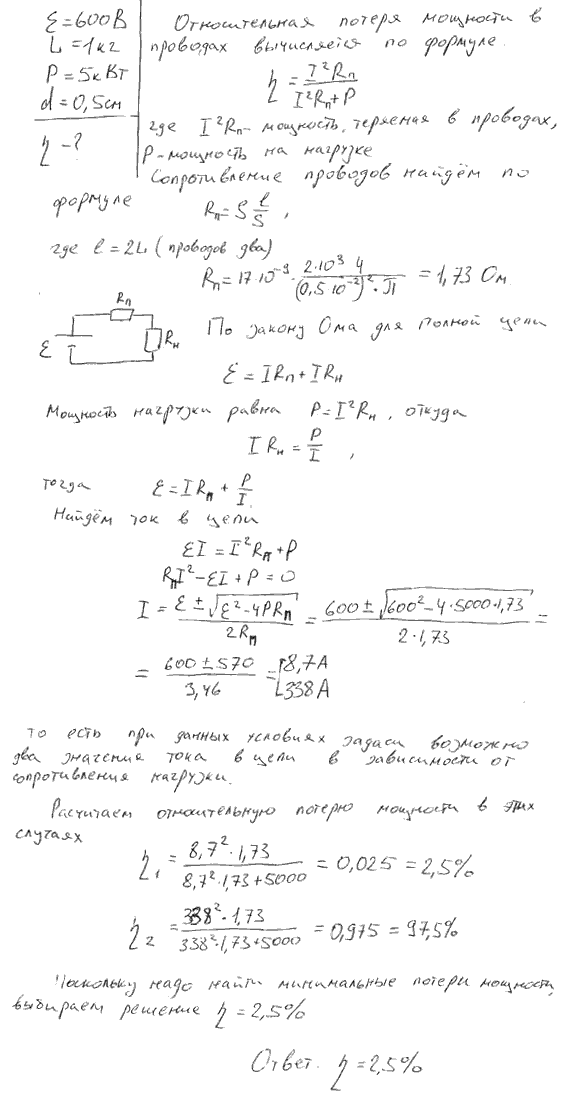 ℰ = 600В
L = 1кг
P = 5кВт
d = 0,5см
η - ?
Относительная потеря мощности в
проводах вычисляется по формуле.
η = I²Rп / (I²Rп + P)
где I²Rп - мощность, теряемая в проводах,
P - мощность на нагрузке
Сопротивление проводов найдём по
формуле Rп = ρ l/S ,
где l = 2L (проводов два)
Rп = 17·10⁻⁹ · 2·10³ 4 / ((0,5·10⁻²)²·π) = 1,73 Ом
Rп
Rн
ℰ
По закону Ома для полной цепи
ℰ = IRп + IRн
Мощность нагрузки равна P = I²Rн , откуда
I Rн = P/I ,
тогда ℰ = IRп + P/I
Найдём ток в цепи
ℰI = I²Rп + P
RпI² - ℰI + P = 0
I = (ℰ ± √(ℰ² - 4PRп)) / 2Rп = (600 ± √(600² - 4·5000·1,73)) / (2·1,73) =
= (600 ± 570) / 3,46 = [8,7А
[338А
то есть при данных условиях задаси возможно
два значения тока в цепи в зависимости от
сопротивления нагрузки.
Расчитаем относительную потерю мощности в этих
случаях
η₁ = 8,7²·1,73 / (8,7²·1,73 + 5000) = 0,025 = 2,5%
η₂ = 338²·1,73 / (338²·1,73 + 5000) = 0,975 = 97,5%
Поскольку надо найти минимальные потери мощности,
выбираем решение η = 2,5%
Ответ. η = 2,5%